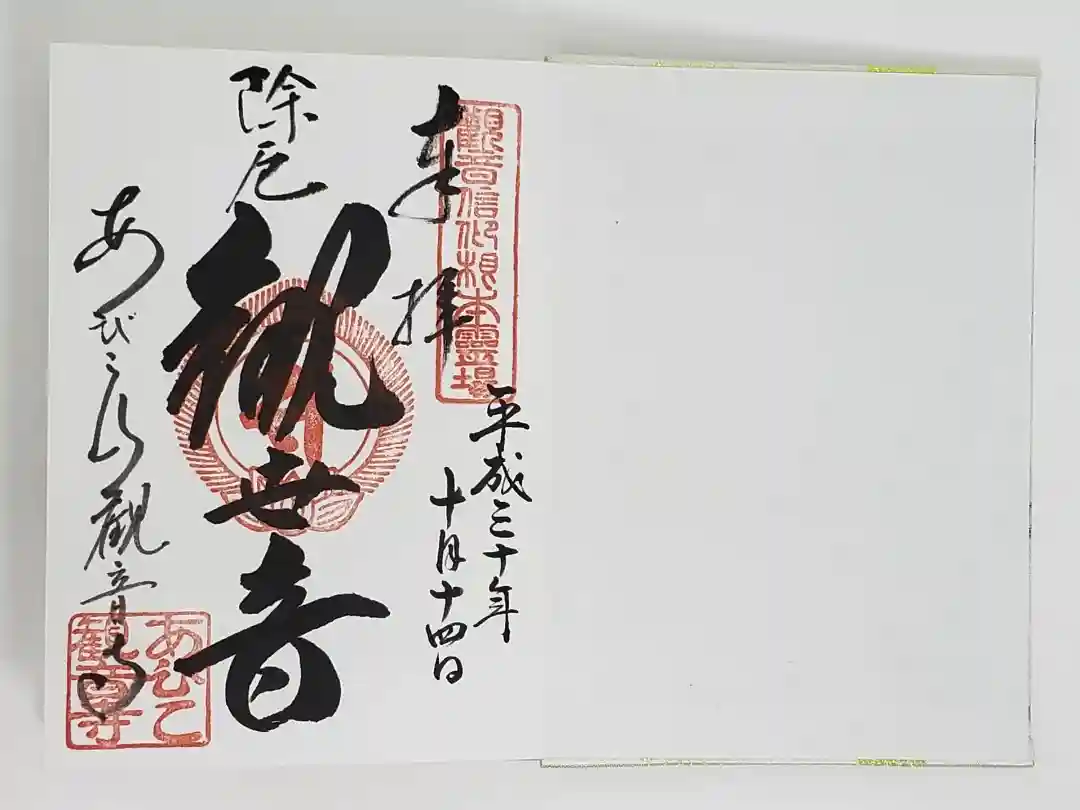 観音信仰根本霊場
奉拝
平成三十年
十月十四日
除厄
観世音
あびこ山観音寺
あびこ
観音寺